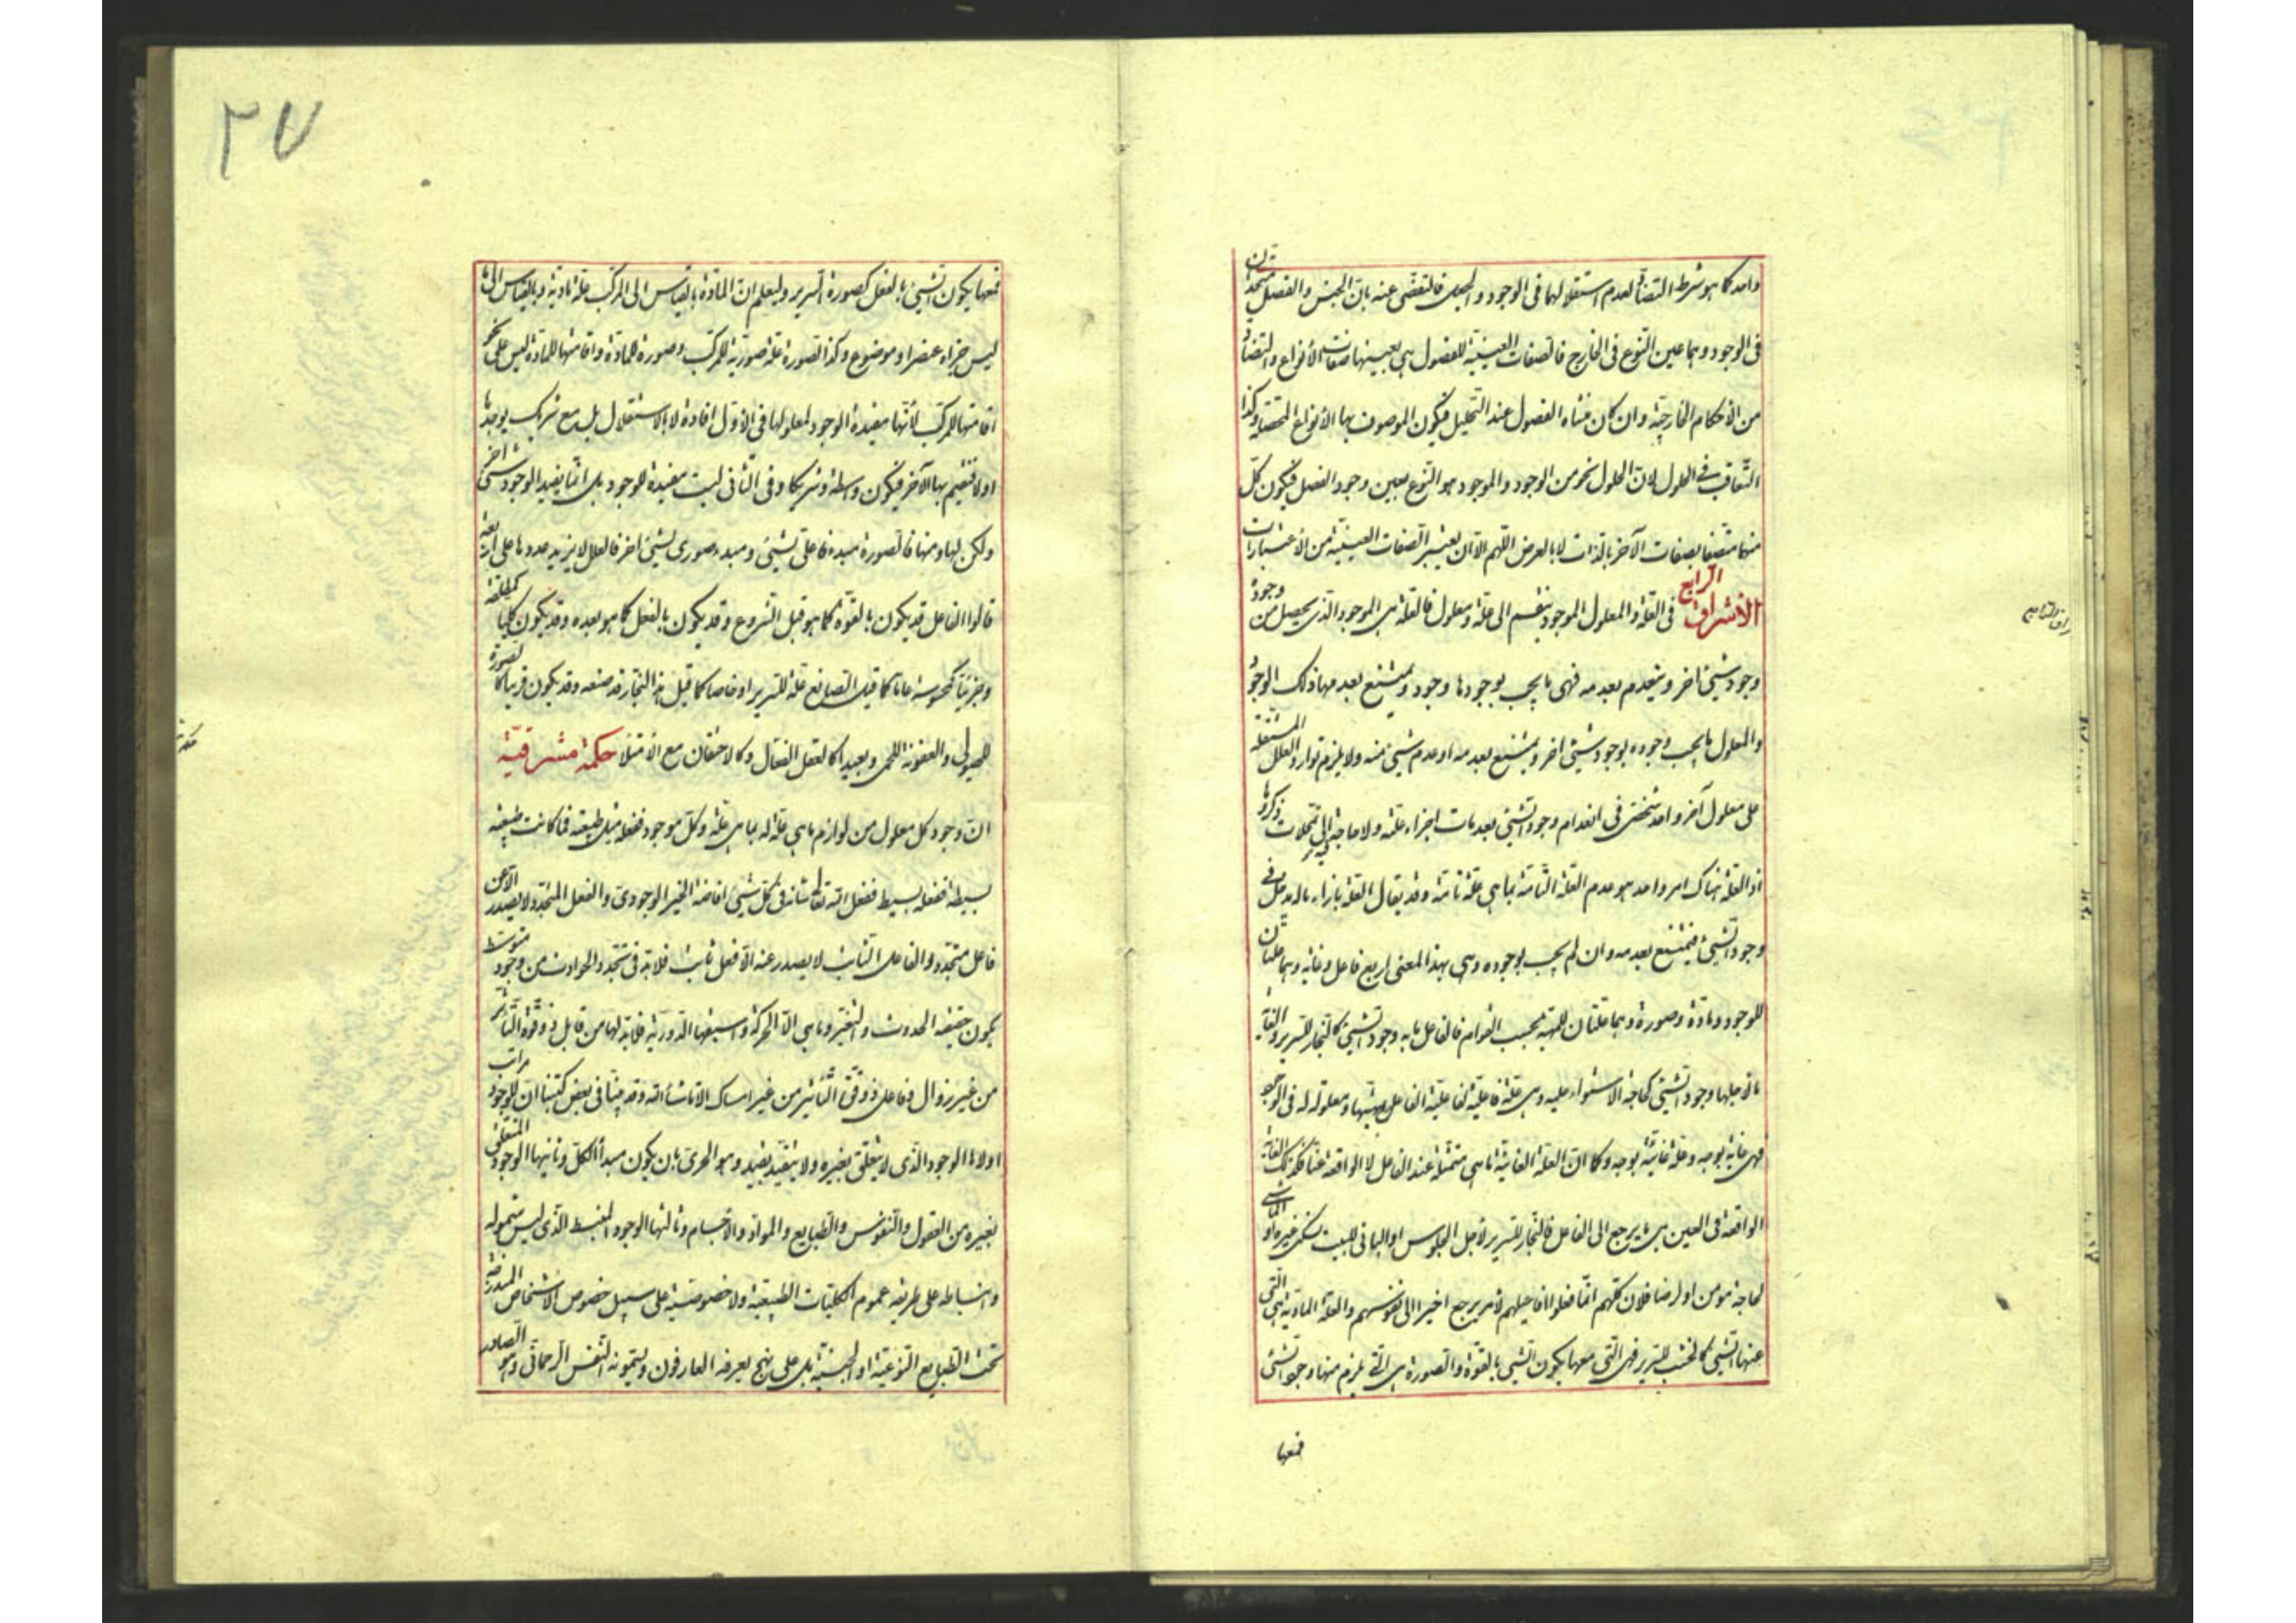 واحد كما هو شرط التضاد لعدم استقلالهما فى الوجود والجعل فالتفصى عنه بان الجنس والفصل متحدان
فى الوجود وهما عين النوع فى الخارج فالصفات العينية للفصول هى بعينها صفات الأنواع والتضاد
من الاحكام الخارجية وان كان منشاه الفصول عند التحليل فيكون الموصوف بها الأنواع المتضادة وكذا
التعاقب فى الحلول لان الحلول نحو من الوجود والموجود هو النوع بعين وجود الفصل فيكون كل
منهما متصفا بصفات الآخر بالذات لا بالعرض اللهم الا ان يعتبر الصفات العينية من الاعتبارات
الاشراق الرابع فى العلة والمعلول الموجود ينقسم الى علة ومعلول فالعلة هى الموجود الذى يحصل من وجوده
وجود شيئ اخر وينعدم بعدمه فهى ما يجب بوجودها وجود ويمتنع بعدمها ذلك الوجود
والمعلول ما يجب وجوده بوجود شيئ اخر ويمتنع بعدمه او عدم شيئ منه ولا يلزم توارد العلل المستقلة
على معلول آخر واحد شخصى فى انعدام وجود الشيئ بعدمات اجزاء علته ولا حاجة فيه الى تمحلات ذكروها
اذ العلة هناك امر واحد هو عدم العلة التامة بما هى علة تامة وقد يقال العلة بازاء ماله مدخل فى
وجود الشيئ فيمتنع بعدمه وان لم يجب بوجوده وهى بهذا المعنى اربع فاعل وغاية وهما علتان
للوجود ومادة وصورة وهما علتان للمهية بحسب القوام فالفاعل ما به وجود الشيئ كالنجار للسرير والغاية
ما لاجلها وجود الشيئ كحاجة الاستواء عليه وهى علة فاعلية لفاعلية الفاعل بمهيتها ومعلولة له فى الوجود
فهى غاية بوجه وعلة غائية بوجه وكما ان العلة الغائية ما هى متمثلة عند الفاعل لا الواقعة عينا فكذلك الغاية
الواقعة فى العين هى ما يرجع الى الفاعل فالنجار للسرير لاجل الجلوس او البانى للبيت ليسكن غيره او الماشى
لحاجة مؤمن او لرضا فلان كلهم انما فعلوا افاعيلهم لأمر يرجع اخيرا الى نفوسهم والعلة المادية هى التى
عنها الشيئ كالخشب للسرير فهى التى معها يكون الشيئ بالقوة والصورة هى التى يلزم منها وجود الشيئ
فمعها
٢٧
فمعها يكون الشيئ بالفعل كصورة السرير وليعلم ان المادة بالقياس الى المركب علة مادية وبالقياس الى ما
ليس جزاء عنصرا وموضوع وكذا الصورة علة صورية للمركب وصورة للمادة واقامتها للمادة ليس على نحو
اقامتها للمركب لأنها مفيدة الوجود لمعلولها فى الأول افادة لا بالاستقلال بل مع شريك يوجدها
اولا فتقيم بها الآخر فيكون واسطة وشريكا وفى الثانى ليست مفيدة للوجود بل انما يفيد الوجود شيئ اخر
ولكن بها ومنها فالصورة مبدء فاعلى لشيئ ومبدء صورى لشيئ اخر فالعلل لا يزيد عددها على اربعة
قالوا الفاعل قد يكون بالقوة كما هو قبل الشروع وقد يكون بالفعل كما هو بعده وقد يكون كليا كمطلقه
وجزئيا كمحسوسه عاما كما قيل الصانع علة للسرير او خاصا كما قيل هذا النجار قد صنعه وقد يكون قريبا كالصورة
للهيولى والعفونة للحمى وبعيدا كالعقل الفعال وكالاحتقان مع الامتلا حكمة مشرقية
ان وجود كل معلول من لوازم ما هى علة له بما هى علة وكل موجود ففعله مثل طبيعته فما كانت طبيعته
بسيطة ففعله بسيط ففعل الله تعالى شانه فى كل شيئ افاضة الخير الوجودى والفعل المتجدد لا يصدر الا عن
فاعل متجدد والفاعل الثابت لا يصدر عنه الا فعل ثابت فلابد فى تجدد الحوادث من وجود متوسط
يكون حقيقته الحدوث والتغير وما هى الا الحركة واسبقها الدورية فلابد لها من قابل ذو قوة التأثر
من غير زوال وفاعل ذو قوة التأثير من غير امساك الا ما شاء الله وقد بينا فى بعض كتبنا ان للوجود مراتب
اولاها الوجود الذى لا يتعلق بغيره ولا يتقيد بقيد وهو الحرى بان يكون مبدأ الكل وثانيها الوجود المتعلق
بغيره من العقول والنفوس والطبايع والمواد والاجسام وثالثها الوجود المنبسط الذى ليس شموله
وانبساطه على طريقة عموم الكليات الطبيعية ولا خصوصيته على سبيل خصوص الاشخاص المندرجة
تحت الطبايع النوعية او الجنسية بل على نهج يعرفه العارفون ويسمونه النفس الرحمانى وهو الصادر